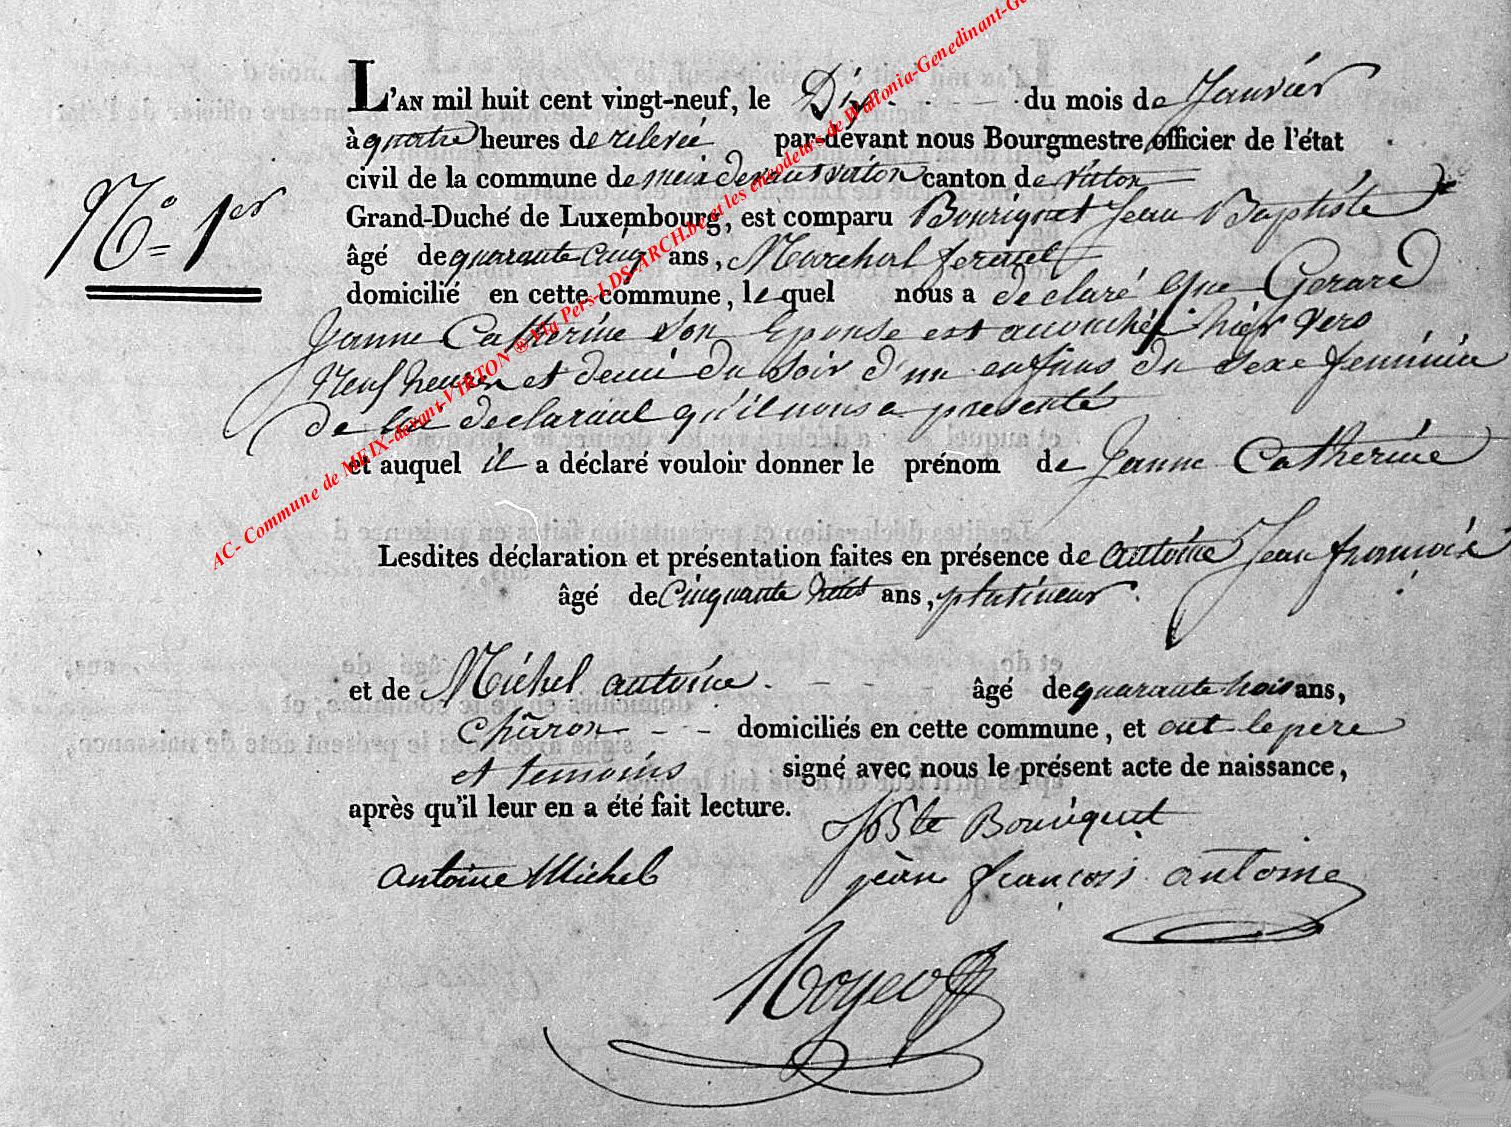 L'AN mil huit cent vingt-neuf, le Dix du mois de Janvier
à quatre heures de relevée par-devant nous Bourgmestre, officier de l'état
civil de la commune de meix devant virton canton de virton
N.º 1er
Grand-Duché de Luxembourg, est comparu Bourignet Jean Baptiste
âgé de quarante cinq ans, Marchal
domicilié en cette commune, lequel nous a declaré que Gerard
Jeanne Catherine son Epouse est accouchée hier vers
Neuf heures et demi du Soir d'un enfans du Sexe feminin
de lui declarant qu'il nous a presenté
et auquel il a déclaré vouloir donner le prénom de Jeanne Catherine
Lesdites déclaration et présentation faites en présence de antoine Jean françois
âgé de Cinquante huit ans, platineur
et de Michel antoine âgé de quarante trois ans,
Charon domiciliés en cette commune, et ont le pere
et temoins signé avec nous le présent acte de naissance,
après qu'il leur en a été fait lecture.
JBte Bourignet
antoine Michel
jean françois antoine
AC- Commune de MEIX-devant-VIRTON ® Via Pers-LDS-ARCH.be et les encodeurs de Wallonia-Genedinant-Ge